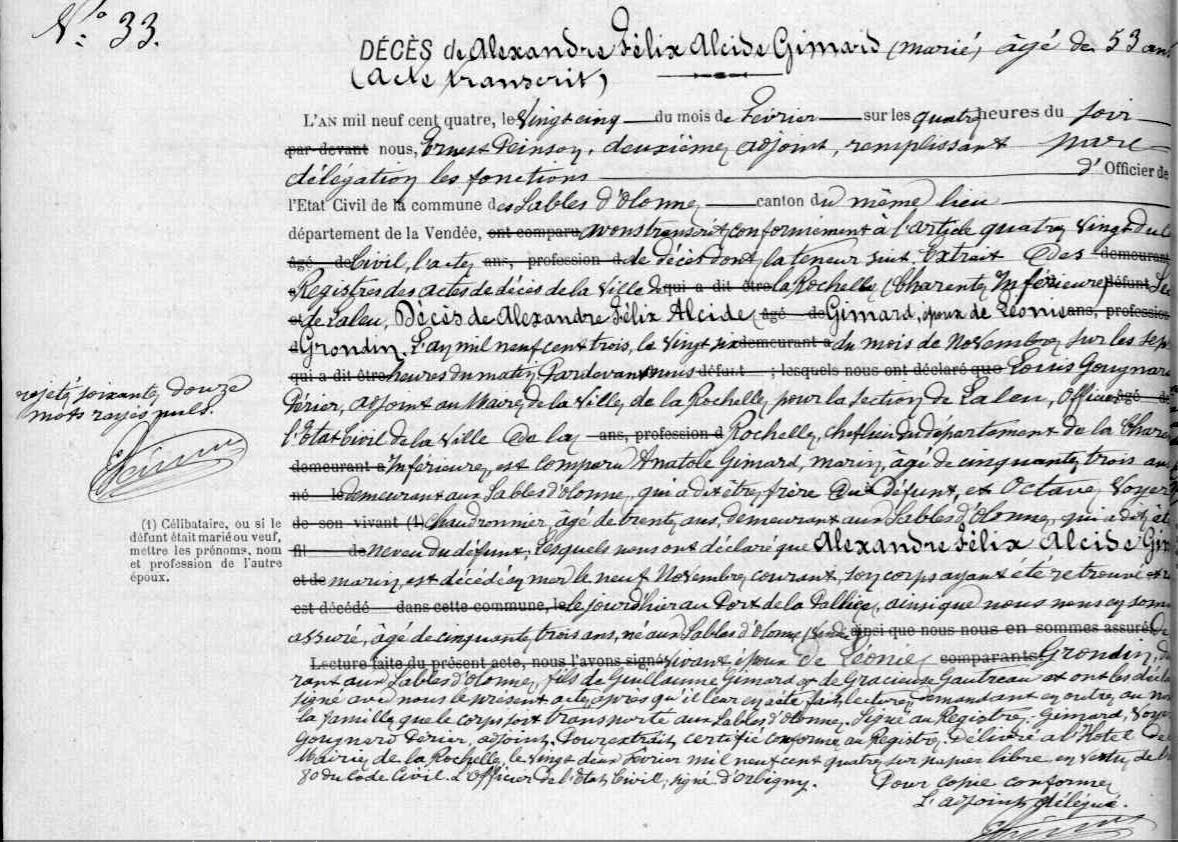 N° 33.
DÉCÈS de Alexandre Félix Alcide Gimard (marié) âgé de 53 ans
(Acte transcrit)
L'AN mil neuf cent quatre, le Vingt cinq du mois de Février sur les quatre heures du soir
par devant nous, Ernest, deuxième adjoint, remplissant par
délégation les fonctions d'Officier de
l'Etat Civil de la commune des Sables d'Olonne canton du même lieu
département de la Vendée, ont comparu avons transcrit conformément à l'article quatre Vingt du C
âgé de Civil, l'acte ans, profession d de décès dont la teneur suit, Extrait Des demeurant
Registres des actes de décès de la Ville de qui a dit être la Rochelle (Charente Inférieure) défunt
et de Laleu, Décès de Alexandre Félix Alcide âgé de Gimard, époux de Léonie ans, profession
d Grondin. L'an mil neuf cent trois, le Vingt six demeurant à du mois de Novembre sur les sept
qui a dit être heures du matin, Pardevant nous défunt ; lesquels nous ont déclaré que Louis Gougnard
Périer, adjoint au Maire de la Ville de la Rochelle, pour la section de Laleu, Officier âgé de
l'Etat Civil de la Ville De la ans, profession d Rochelle, chef lieu du département de la Chare
demeurant à Inférieure, est comparu Anatole Gimard, marin, âgé de cinquante trois ans
né le demeurant aux Sables d'Olonne, qui a dit être frère Du Défunt, et Octave Voyer
de son vivant (1) Chaudronnier, âgé de trente ans, demeurant aux Sables d'Olonne, qui a dit êt
fil de neveu du défunt; Lesquels nous ont déclaré que Alexandre Félix Alcide Gim
et de marin, est décédé en mer le neuf Novembre courant, son corps ayant été retrouvé
est décédé dans cette commune, le le jour d'hier au Port de la Pallice, ainsi que nous nous en somm
assuré, âgé de cinquante trois ans, né aux Sables d'Olonne (Vendée) ainsi que nous nous en sommes assuré. De
Lecture faite du présent acte, nous l'avons signé Vivant époux de Léonie comparants Grondin, de
rant aux Sables d'Olonne, fils de Guillaume Gimard et de Gracieuse Gautreau et ont les décla
signé avec nous le présent acte après qu'il leur en a été fait lecture, demandant en outre, au nom
la famille que le corps soit transporté aux Sables d'Olonne. Signé au Registre: Gimard, Voyer
Gougnard Périer, adjoint. Pour extrait certifié conforme au Registre. Délivré à l'Hôtel de
Mairie de la Rochelle, le Vingt deux Février mil neuf cent quatre, sur papier libre en vertu de l'
80 du Code Civil. L'Officier de l'état Civil, signé d'Orbigny.
Pour copie conforme
L'adjoint délégué.
rejeté soixante douze
mots rayés nuls.
(1) Célibataire, ou si le
défunt était marié ou veuf,
mettre les prénoms, nom
et profession de l'autre
époux.